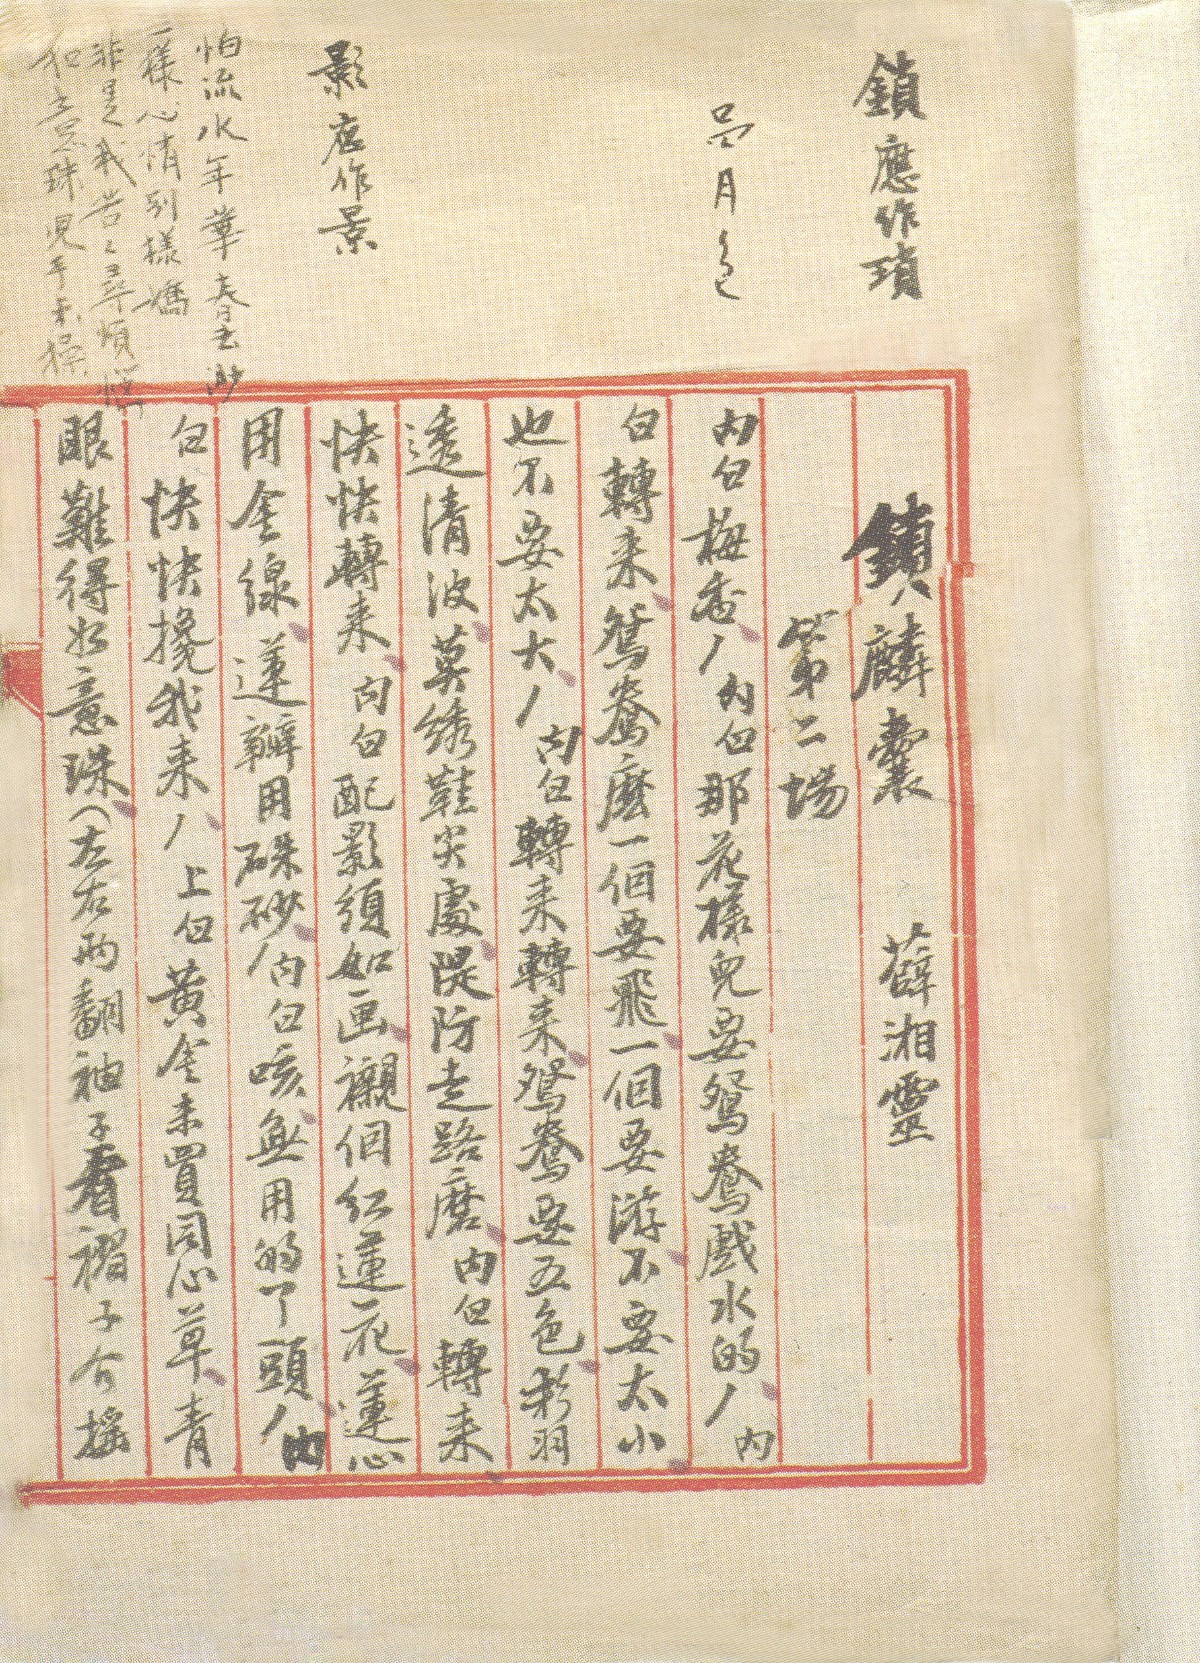 鎖應作瑣
影應作景
怕流水年華春去渺
一樣心情別樣嬌
非是我苦々尋煩惱
如意珠兒手未操
鎖麟囊　薛湘靈
第二場
內白梅香ノ內白那花樣兒要鴛鴦戲水的ノ內
白轉来鴛鴦麽一個要飛一個要游不要太小
也不要太大ノ內白轉来轉来鴛鴦要五色彩羽
透清波莫綉鞋尖處隄防走路磨內白轉来
快快轉来內白配影須如画襯個紅蓮花蓮心
用金線蓮瓣用硃砂ノ內白咳無用的丫頭ノ內
白快快攙我来ノ上白黃金未買同心草青
眼難得如意珠（左右兩翻袖子看褶子介搖